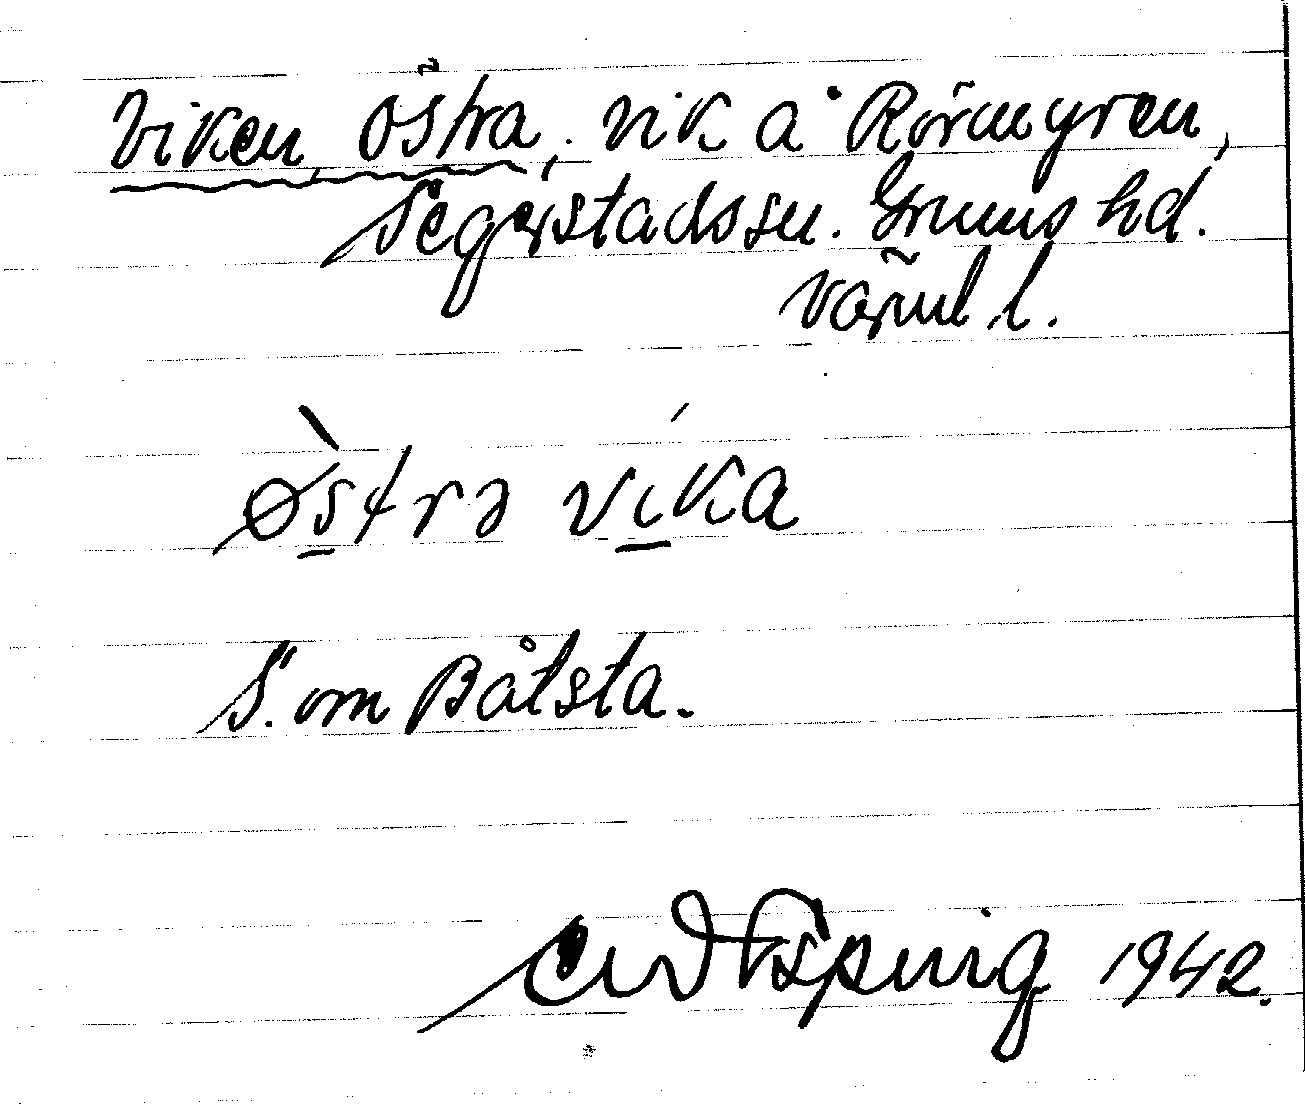 Viken, Östra, vik å Rörmyren,
Segerstads sn. Grums hd.
Värml. l.
Østrə vika
S. om Båtsta.
1942.